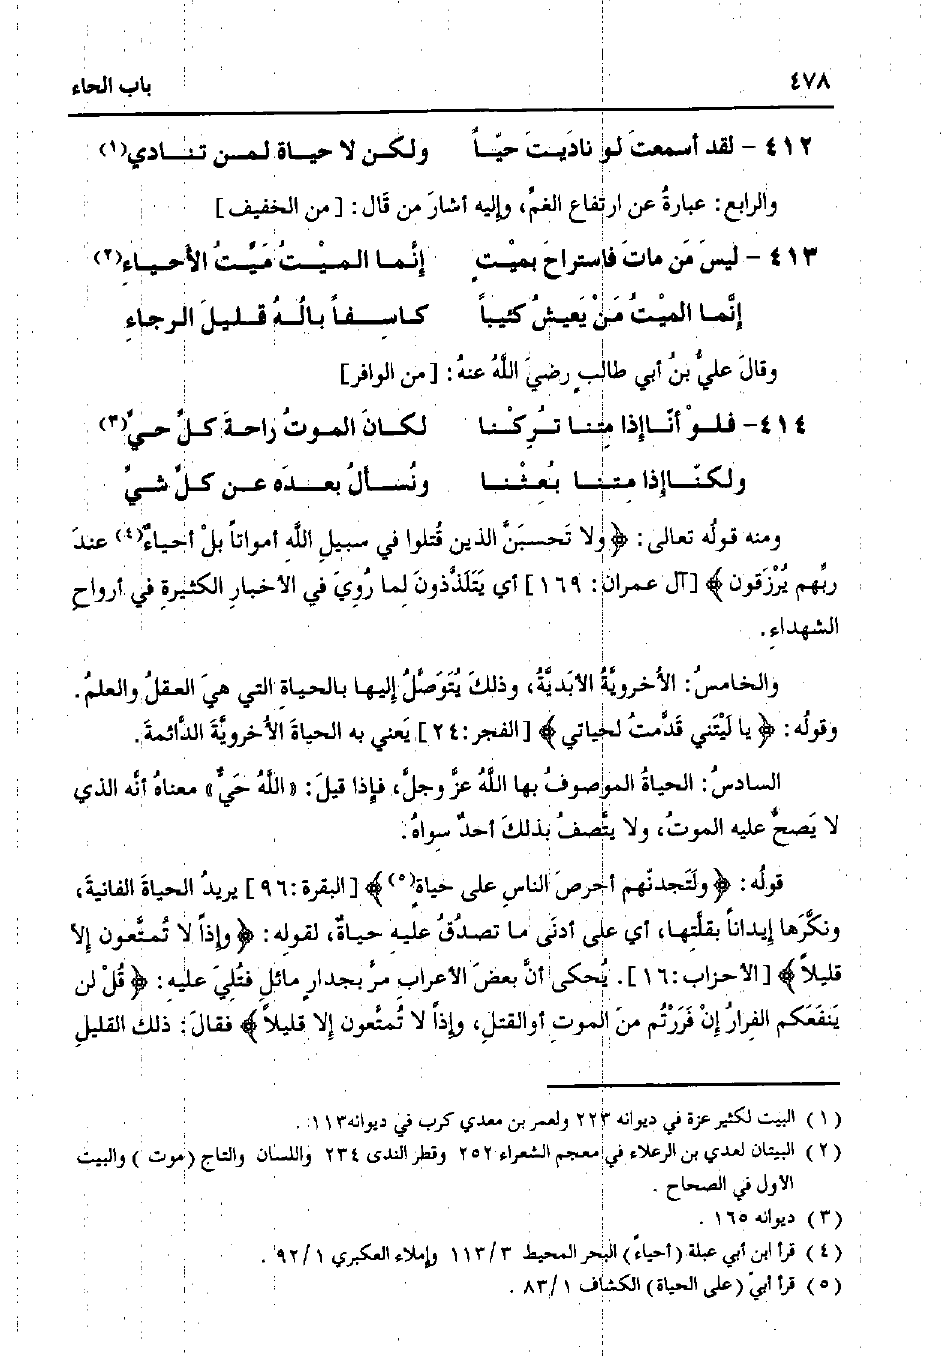 ٤٧٨ باب الحاء
٤١٢ - لقد أسمعتَ لو نادَيتَ حيّاً ولكن لا حياة لمن تنادي(١)
والرابع: عبارةٌ عن ارتفاع الغمِّ، وإليه أشارَ من قَال: [من الخفيف]
٤١٣ - ليسَ مَن ماتَ فاستراحَ بميْتٍ إنَّما الميْتُ مَيِّتُ الأحياءِ(٢)
إنَّما الميْتُ مَنْ يَعيشُ كئيباً كاسِفاً بالُهُ قليلَ الرجاءِ
وقالَ عليُّ بنُ أبي طالبٍ رضيَ اللَّهُ عنهُ: [من الوافر]
٤١٤- فلوْ أنّاإذا مِتنا تُرِكْنا لكانَ الموتُ راحةَ كلِّ حيِّ(٣)
ولكنّاإذا مِتنا بُعثْنا ونُسألُ بعدَه عن كلِّ شيِّ
ومنه قولُه تعالى: ﴿ولا تَحسبَنَّ الذين قُتلوا في سبيلِ اللَّهِ أمواتاً بلْ أحياءٌ(٤) عندَ
ربِّهم يُرْزَقون﴾ [آل عمران: ١٦٩] أي يَتَلَذَّذونَ لِما رُوِيَ في الأخبارِ الكثيرةِ في أرواحِ
الشهداءِ.
والخامسُ: الأخرويَّةُ الأبَديَّةُ، وذلكَ يُتَوَصَّلُ إليها بالحياةِ التي هيَ العقلُ والعلمُ.
وقولُه: ﴿يا لَيْتَني قَدَّمتُ لحياتي﴾ [الفجر:٢٤] يَعني به الحياةَ الأخرويَّةَ الدَّائمةَ.
السادسُ: الحياةُ الموصوفُ بها اللَّهُ عزَّ وجلَّ، فإذا قيلَ: «اللَّهُ حَيٌّ» معناهُ أنَّه الذي
لا يَصحُّ عليه الموتُ، ولا يتَّصفُ بذلكَ أحدٌ سِواهُ.
قولُه: ﴿ولَتَجدنَّهم أحرصَ الناسِ على حَياةٍ(٥)﴾ [البقرة:٩٦] يريدُ الحياةَ الفانيةَ،
ونكَّرَها إيداناً بقلَّتِها، أي على أدنَى ما تصدُقُ عليه حياةٌ، لقوله: ﴿وإذاً لا تُمتَّعون إلا
قليلاً﴾ [الأحزاب:١٦]. يُحكى أنَّ بعضَ الأعرابِ مرَّ بجدارٍ مائلٍ فتُليَ عليهِ: ﴿قُلْ لن
يَنفَعَكم الفرارُ إنْ فَرَرْتُم منَ الموتِ أوالقتلِ، وإذاً لا تُمتَّعون إلا قليلاً﴾ فقالَ: ذلك القليلِ
(١) البيت لكثير عزة في ديوانه ٢٢٣ ولعمر بن معدي كرب في ديوانه١١٣.
(٢) البيتان لعدي بن الرعلاء في معجم الشعراء ٢٥٢ وقطر الندى ٢٣٤ واللسان والتاج (موت) والبيت
الأول في الصحاح.
(٣) ديوانه ١٦٥.
(٤) قرأ ابن أبي عبلة (أحياءً) البحر المحيط ١١٣/٣ وإملاء العكبري ٩٢/١.
(٥) قرأ أبيّ (على الحياة) الكشاف ٨٣/١.